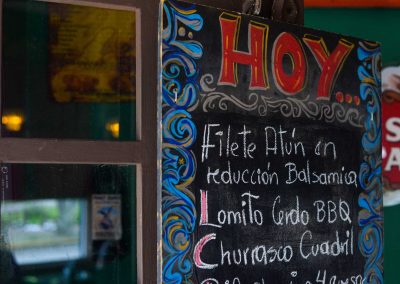 HOY...
Filete Atún en
reducción Balsamica
Lomito Cerdo BBQ
Churrasco Cuadril